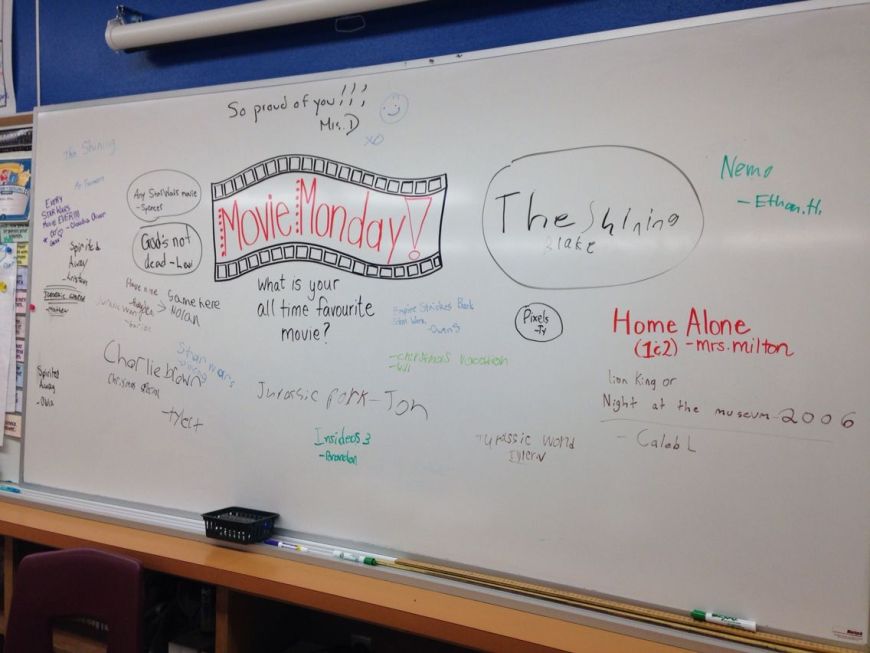 So proud of you!!!
Mrs. D
xo
The Shining
EVERY
STAR WARS
Movie EVER!!!
Any Star Wars movie
-Spencer
God's not
dead - Levi
Movie Monday!
What is your
all time favourite
movie?
The Shining
Blake
Nemo
- Ethan.H.
Spirited
Away
-Kristen
Same here
NOLAN
Jurassic
Charlie brown
Christmas special
-tylert
Star wars
Spirited
Away
-Olivia
Empire Strikes Back
Star Wars
-Owen S
-christmas vacation
Jurassic park - Jon
Insideos 3
-Brandon
Pixels
-Ty
Jurassic World
Home Alone
(1&2) -mrs.milton
Lion King or
Night at the museum-2006
- Caleb L